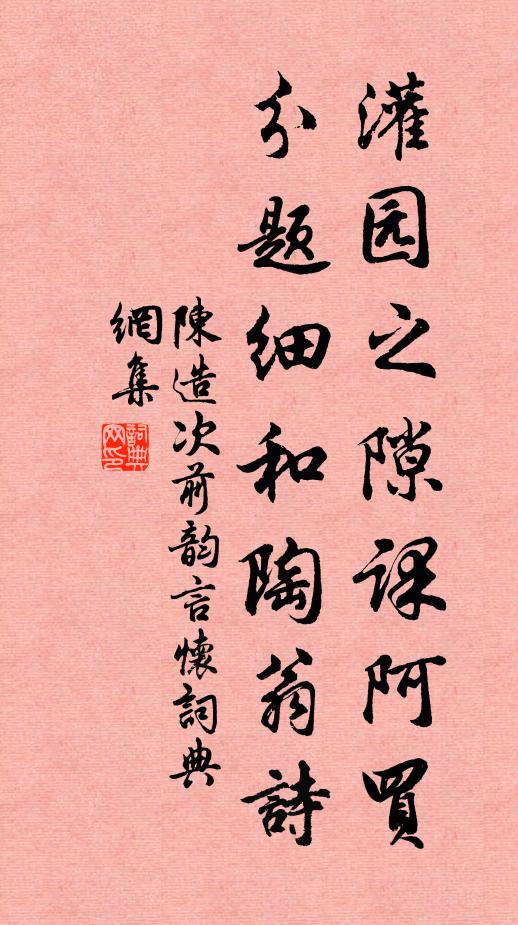 灌园之隙课阿買
分题细和陶翁詩
陳造次前韵言懷詞典
網集
詞典
网印